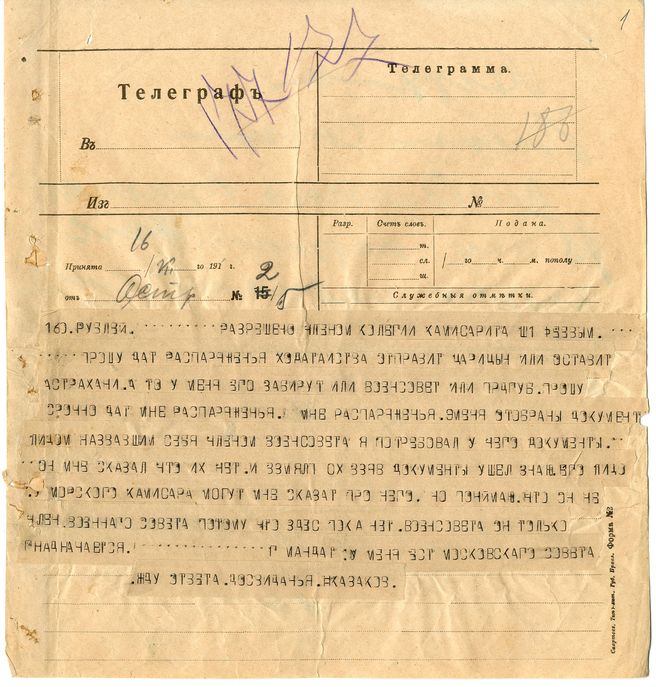 1
177 177
Телеграфъ
Телеграмма.
188
Въ
Изъ
№
Разр.
Счетъ словъ.
Подана.
т.
сл.
ш.
/ го ч. м. пополу
16
Принята / го 191 г.
2
отъ Астр № 15/5
Служебныя отмѣтки.
160.РУБЛЕЙ. РАЗРЕШЕНО ЧЛЕНОМ КОЛЕГИИ КАМИСАРИТА
ПРОШУ ДАТ РАСПАРЯЖЕНЬЯ ХОДАТАИСТВА ОТПРАВИТ ЦАРИЦЫН ИЛИ ОСТАВИТ
АСТРАХАНИ.А ТО У МЕНЯ ЕГО ЗАБИРУТ ИЛИ ВОЕНСОВЕТ ИЛИ ПРДГУБ.ПРОШУ
СРОЧНО ДАТ МНЕ РАСПАРЯЖЕНЬЯ. МНЕ РАСПАРЯЖЕНЬЯ.ЭМЕНЯ ОТОБРАНЫ ДОКУМЕНТ
ЛИЦОМ НАЗВАВШИМ СЕБЯ ЧЛЕНОМ ВОЕНСОВЕТА Я ПОТРЕБОВАЛ У НЕГО ДОКУМЕНТЫ.
ОН МНЕ СКАЗАЛ ЧТО ИХ НЕТ.И ВЗМЯЛП ОХ ВЗЯВ ДОКУМЕНТЫ УШЕЛ ЗНАШ.ЕГО ЛИЦО
.У МОРСКОГО КАМИСАРА МОГУТ МНЕ СКАЗАТ ПРО НЕГО. НО ПОНЙМАЮ.ЧТО ОН НЕ
ЧЛЕН.ВОЕННАГО СОВЕТА ПОТОМУ ЧТО ЗДЕС ПОКА НЕТ.ВОЕНСОВЕТА ОН ТОЛЬКО
ПНАДНАЧАЕТСЯ. МАНДАТ У МЕНЯ ЕСТ МОСКОВСКАГО СОВЕТА
.ЖДУ ОТВЕТА.ДОСВИДАНЬЯ.ЖКАЗАКОВ.
Форма №2